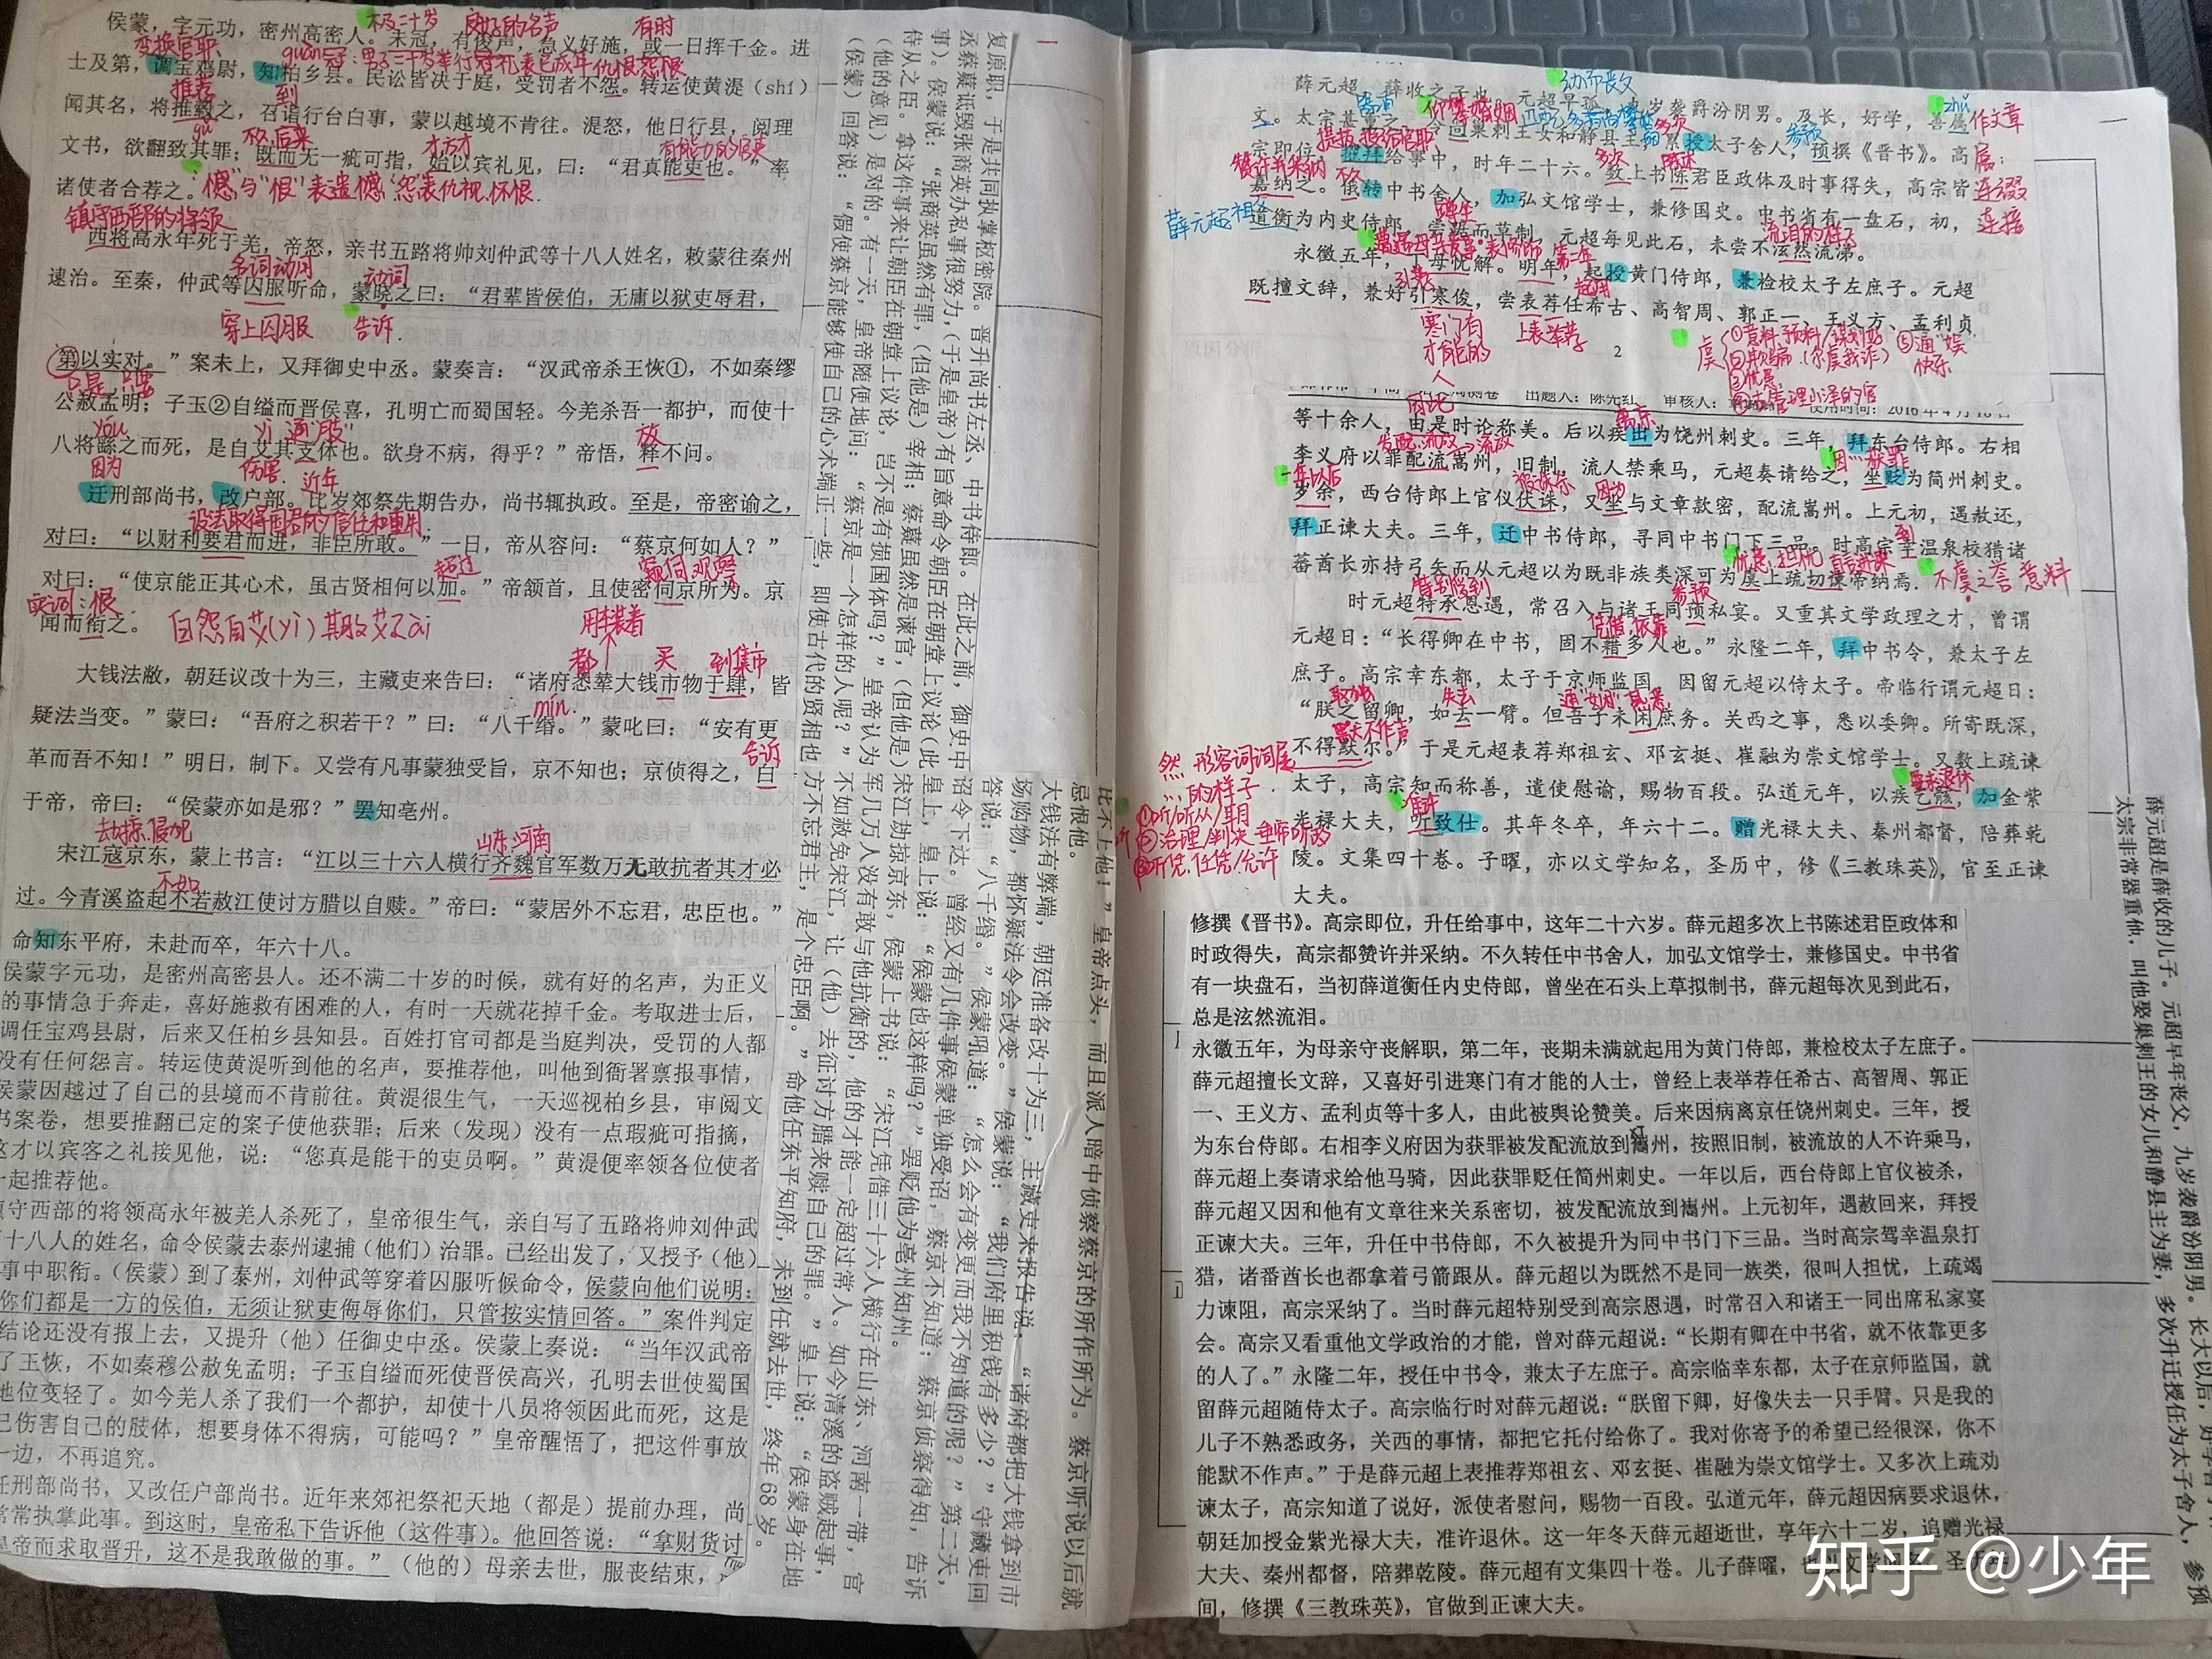 侯蒙，字元功，密州高密人。未冠，有俊声，急义好施，或一日挥千金。进
士及第，调宝鸡尉，知柏乡县。民讼皆决于庭，受罚者不怨。转运使黄湜（shí）
闻其名，将推毂之，召诣行台白事，蒙以越境不肯往。湜怒，他日行县，阅理
文书，欲翻致其罪；既而无一疵可指，始以宾礼见，曰：“君真能吏也。”率
诸使者合荐之。
不及二十岁
良好的名声
有时
变换官职
推荐
到
不久后来
才方才
有能力的官吏
“憾”与“恨”表遗憾，怨表仇视、怀恨
镇守西部的将领
西将高永年死于羌，帝怒，亲书五路将帅刘仲武等十八人姓名，敕蒙往秦州
逮治。至秦，仲武等囚服听命，蒙晓之曰：“君辈皆侯伯，无庸以狱吏辱君，
第以实对。”案未上，又拜御史中丞。蒙奏言：“汉武帝杀王恢①，不如秦缪
公赦孟明；子玉②自缢而晋侯喜，孔明亡而蜀国轻。今羌杀吾一都护，而使十
八将繇之而死，是自艾其支体也。欲身不病，得乎？”帝悟，释不问。
名词动用
动词
穿上囚服
告诉
yóu
因为
yì 通“刈”
伤害
放
近年
迁刑部尚书，改户部。比岁郊祭先期告办，尚书辄执政。至是，帝密谕之，
对曰：“以财利要君而进，非臣所敢。”一日，帝从容问：“蔡京何如人？”
对曰：“使京能正其心术，虽古贤相何以加。”帝颔首，且使密伺京所为。京
闻而衔之。
设法取得国君的信任和重用
超过
窥伺、观察
自怨自艾(yì) 其敢艾又ài
用车装着
都
买
到集市
大钱法敝，朝廷议改十为三，主藏吏来告曰：“诸府悉辇大钱市物于肆，皆
疑法当变。”蒙曰：“吾府之积若干？”曰：“八千缗。”蒙叱曰：“安有更
革而吾不知！”明日，制下。又尝有凡事蒙独受旨，京不知也；京侦得之，白
于帝，帝曰：“侯蒙亦如是邪？”罢知亳州。
mín
告诉
去劫掠、侵犯
山东、河南
不如
宋江寇京东，蒙上书言：“江以三十六人横行齐魏官军数万无敢抗者其才必
过。今青溪盗起不若赦江使讨方腊以自赎。”帝曰：“蒙居外不忘君，忠臣也。”
命知东平府，未赴而卒，年六十八。
侯蒙字元功，是密州高密县人。还不满二十岁的时候，就有好的名声，为正义
的事情急于奔走，喜好施救有困难的人，有时一天就花掉千金。考取进士后，
调任宝鸡县尉，后来又任柏乡县知县。百姓打官司都是当庭判决，受罚的人都
没有任何怨言。转运使黄湜听到他的名声，要推荐他，叫他到衙署禀报事情，
侯蒙因越过了自己的县境而不肯前往。黄湜很生气，一天巡视柏乡县，审阅文
书案卷，想要推翻已定的案子使他获罪；后来（发现）没有一点瑕疵可指摘，
这才以宾客之礼接见他，说：“您真是能干的吏员啊。”黄湜便率领各位使者
一起推荐他。
守西部的将领高永年被羌人杀死了，皇帝很生气，亲自写了五路将帅刘仲武
十八人的姓名，命令侯蒙去秦州逮捕（他们）治罪。已经出发了，又授予（他）
事中职衔。（侯蒙）到了秦州，刘仲武等穿着囚服听候命令，侯蒙向他们说明：
你们都是一方的侯伯，无须让狱吏侮辱你们，只管按实情回答。”案件判定
结论还没有报上去，又提升（他）任御史中丞。侯蒙上奏说：“当年汉武帝
了王恢，不如秦穆公赦免孟明；子玉自缢而死使晋侯高兴，孔明去世使蜀国
地位变轻了。如今羌人杀了我们一个都护，却使十八员将领因此而死，这是
己伤害自己的肢体，想要身体不得病，可能吗？”皇帝醒悟了，把这件事放
一边，不再追究。
任刑部尚书，又改任户部尚书。近年来郊祀祭祀天地（都是）提前办理，尚
常常执掌此事。到这时，皇帝私下告诉他（这件事）。他回答说：“拿财货讨
皇帝而求取晋升，这不是我敢做的事。”（他的）母亲去世，服丧结束，
复原职，于是共同执掌枢密院。晋升尚书左丞、中书侍郎。在此之前，御史中
丞蔡嶷诋毁张商英办私事很努力，（于是皇帝）有旨意命令朝臣在朝堂上议论（此
事）。侯蒙说：“张商英虽然有罪，（但他是）宰相；蔡嶷虽然是谏官，（但他是）
侍从之臣。拿这件事来让朝臣在朝堂上议论，岂不是有损国体吗？”皇帝认为
（他的意见）是对的。有一天，皇帝随便地问：“蔡京是一个怎样的人呢？”
（侯蒙）回答说：“假使蔡京能够使自己的心术端正一些，即使古代的贤相也
比不上他！”皇帝点头，而且派人暗中侦察蔡京的所作所为。蔡京听说以后就
忌恨他。
大钱法有弊端，朝廷准备改十为三，主藏吏来报告说，“诸府都把大钱拿到市
场购物，都怀疑法令会改变。”侯蒙说：“我们府里积钱有多少？”守藏吏回
答说：“八千缗。”侯蒙吼道：“怎么会有变更而我不知道的呢？”第二天，
诏令下达。曾经又有几件事侯蒙单独受诏，蔡京不知道；蔡京侦察得知，告诉
皇上，皇上说：“侯蒙也这样吗？”罢贬他为亳州知州。
宋江劫掠京东，侯蒙上书说：“宋江凭借三十六人横行在山东、河南一带，官
军几万人没有敢与他抗衡的，他的才能一定超过常人。如今清溪的盗贼起事，
不如赦免宋江，让（他）去征讨方腊来赎自己的罪。”皇上说：“侯蒙身在地
方不忘君主，是个忠臣啊。”命他任东平知府，未到任就去世，终年68岁。
薛元超，薛收之子也。元超早孤，九岁袭爵汾阴男。及长，好学，善属
文。太宗甚重之，令回巢刺王女和静县主，累授太子舍人，预撰《晋书》。高
宗即位，擢拜给事中，时年二十六。数上书陈君臣政体及时事得失，高宗皆
嘉纳之。俄转中书舍人，加弘文馆学士，兼修国史。中书省有一盘石，初，
道衡为内史侍郎，尝踞而草制，元超每见此石，未尝不泫然流涕。
永徽五年，丁母忧解。明年，起授黄门侍郎，兼检校太子左庶子。元超
既擅文辞，兼好引寒俊，尝表荐任希古、高智周、郭正一、王义方、孟利贞
幼而丧父
zhǔ
作文章
属：
连缀
连接
多次
参预
赞许并采纳
不久
陈述
蹲坐
薛元超祖父
流泪的样子
第二年
引荐
起用
寒门有
才能的
人
上表举荐
2
虞
①意料、预料/谋划
②欺骗（尔虞我诈）
③忧患
④古管理山泽的官
⑤通“娱”
快乐
等十余人，由是时论称美。后以疾出为饶州刺史。三年，拜东台侍郎。右相
李义府以罪配流嶲州，旧制，流人禁乘马，元超奏请给之，坐贬为简州刺史。
岁余，西台侍郎上官仪伏诛，又坐与文章款密，配流嶲州。上元初，遇赦还，
拜正谏大夫。三年，迁中书侍郎，寻同中书门下三品。时高宗幸温泉校猎诸
蕃酋长亦持弓矢而从元超以为既非族类深可为虞上疏切谏帝纳焉。
时元超特承恩遇，常召入与诸王同预私宴。又重其文学政理之才，曾谓
元超曰：“长得卿在中书，固不藉多人也。”永隆二年，拜中书令，兼太子左
庶子。高宗幸东都，太子于京师监国，因留元超以侍太子。帝临行谓元超曰：
“朕之留卿，如去一臂。但吾子未闲庶务。关西之事，悉以委卿。所寄既深，
不得默尔。”于是元超表荐郑祖玄、邓玄挺、崔融为崇文馆学士。又数上疏谏
太子，高宗知而称善，遣使慰谕，赐物百段。弘道元年，以疾乞骸，加金紫
光禄大夫，听致仕。其年冬卒，年六十二。赠光禄大夫、秦州都督，陪葬乾
陵。文集四十卷。子曜，亦以文学知名，圣历中，修《三教珠英》，官至正谏
大夫。
因此
离京
一年以后
因…获罪
因为
到
不虞之誉 意料
特别得到
参预
凭借、依靠
失去
通“娴” 熟悉
默不作声
要求退休
准许
然 形容词词尾
…的样子
①听/听从/耳目
②治理/判决 垂帘听政
③听凭、任凭/允许
修撰《晋书》。高宗即位，升任给事中，这年二十六岁。薛元超多次上书陈述君臣政体和
时政得失，高宗都赞许并采纳。不久转任中书舍人，加弘文馆学士，兼修国史。中书省
有一块盘石，当初薛道衡任内史侍郎，曾坐在石头上草拟制书，薛元超每次见到此石，
总是泫然流泪。
永徽五年，为母亲守丧解职，第二年，丧期未满就起用为黄门侍郎，兼检校太子左庶子。
薛元超擅长文辞，又喜好引进寒门有才能的人士，曾经上表举荐任希古、高智周、郭正
一、王义方、孟利贞等十多人，由此被舆论赞美。后来因病离京任饶州刺史。三年，授
为东台侍郎。右相李义府因为获罪被发配流放到嶲州，按照旧制，被流放的人不许乘马，
薛元超上奏请求给他马骑，因此获罪贬任简州刺史。一年以后，西台侍郎上官仪被杀，
薛元超又因和他有文章往来关系密切，被发配流放到嶲州。上元初年，遇赦回来，拜授
正谏大夫。三年，升任中书侍郎，不久被提升为同中书门下三品。当时高宗驾幸温泉打
猎，诸番酋长也都拿着弓箭跟从。薛元超以为既然不是同一族类，很叫人担忧，上疏竭
力谏阻，高宗采纳了。当时薛元超特别受到高宗恩遇，时常召入和诸王一同出席私家宴
会。高宗又看重他文学政治的才能，曾对薛元超说：“长期有卿在中书省，就不依靠更多
的人了。”永隆二年，授任中书令，兼太子左庶子。高宗临幸东都，太子在京师监国，就
留薛元超随侍太子。高宗临行时对薛元超说：“朕留下卿，好像失去一只手臂。只是我的
儿子不熟悉政务，关西的事情，都把它托付给你了。我对你寄予的希望已经很深，你不
能默不作声。”于是薛元超上表推荐郑祖玄、邓玄挺、崔融为崇文馆学士。又多次上疏劝
谏太子，高宗知道了说好，派使者慰问，赐物一百段。弘道元年，薛元超因病要求退休，
朝廷加授金紫光禄大夫，准许退休。这一年冬天薛元超逝世，享年六十二岁，追赠光禄
大夫、秦州都督，陪葬乾陵。薛元超有文集四十卷。儿子薛曜，
间，修撰《三教珠英》，官做到正谏大夫。
薛元超是薛收的儿子。元超早年丧父，九岁袭爵汾阴男。长大以后，好学
太宗非常器重他，叫他娶巢刺王的女儿和静县主为妻，多次升迁授任为太子舍人，参预
知乎 @少年